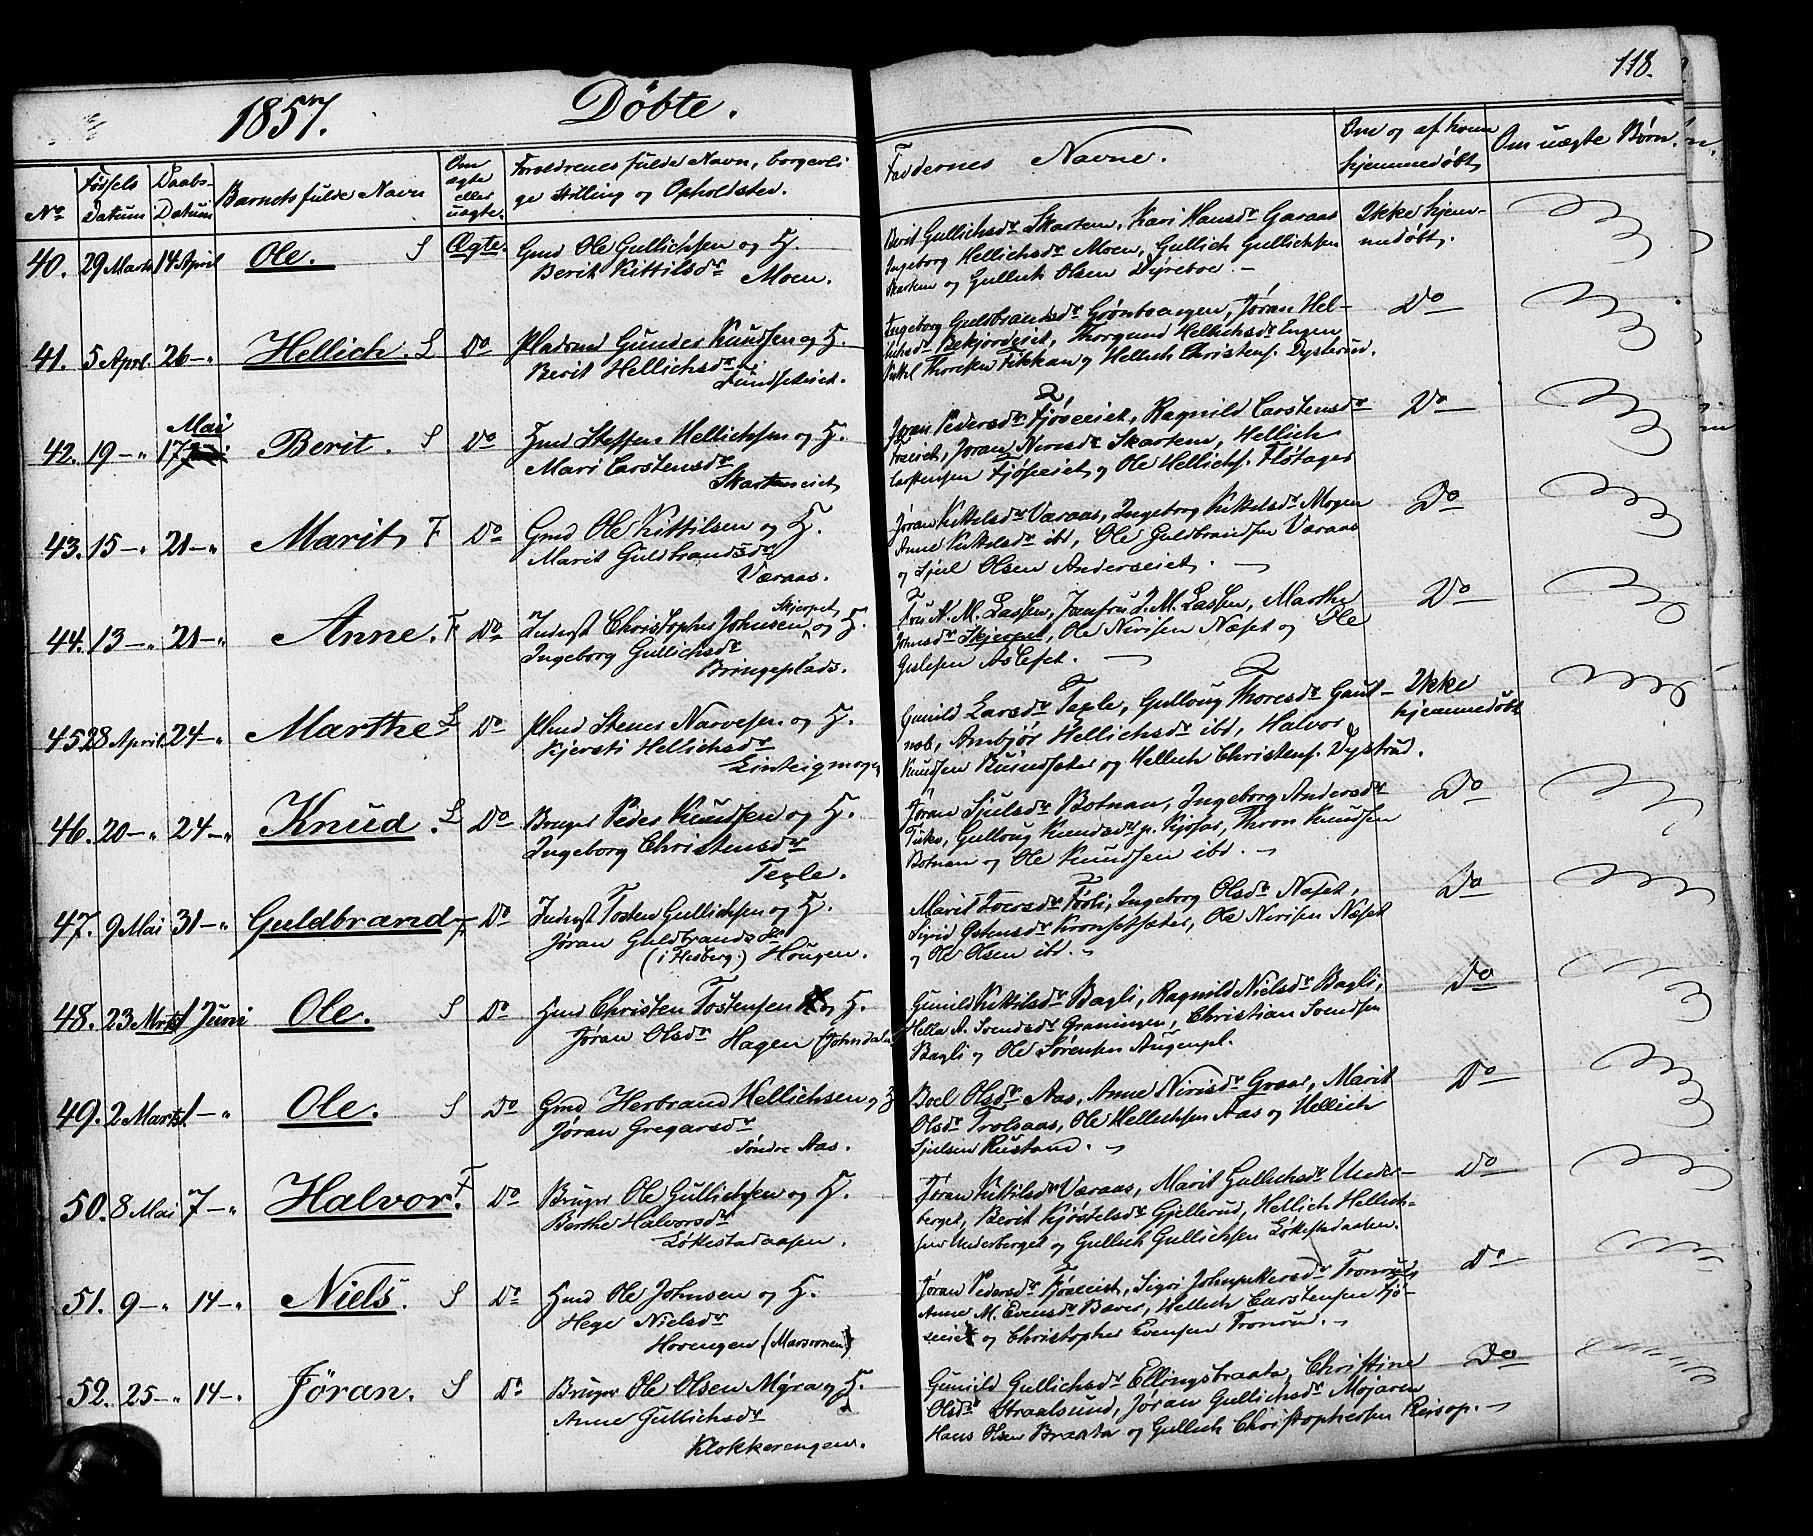 118.
1857. Döbte.
No
Fødsels Datum
Daabs-Datum
Barnets fulde Navn
Om ægte eller uægte.
Forældrenes fulde Navn, borgerli
ge Stilling og Opholdsted.
Faddernes Navne.
Om og af hvem
hjemmedøbt
Om uægte Børn.
40. 29 Marts 14 April Ole. S Ægte. Gmd Ole Gullichsen og H.
Berit Kittilsdr
Moen.
Berit Gullichsdr Skartem, Kari Hansdr Garaas
Ingeborg Hellichsdr Moen, Gullich Gullichsen
Skartem og Gullich Olsen Dyreboe. -
Ikke hjem-
medøbt.
41. 5 Apr. 26 -" Hellich. S Do Pladsmd Gunder Knudsen og H.
Berit Hellichsdr
Fundseteiet.
Ingeborg Guldbrandsdr Grøntvangen, Jøran Hel-
lichsdr Bekjordeiet, Thorgund Hellichsdr Engen
Kittel Thoresen Fikkan og Hellich Christens. Dysterud.
Do
42. 19 -" 17 Mai Berit. S Do Hmd Steffen Hellichsen og H.
Mari Carstensdr
Skartemeiet
Jøran Pedersdr Fjøseiet, Ragnild Carstensdr
Træeiet, Jøran Nirisdr Skartem, Hellich
Carstensen Fjøseiet og Ole Hellichs. Fløtager
Do
43. 15 -" 21 -" Marit F Do Gmd Ole Kittilsen og H.
Marit Guldbrandsdr
Væraas.
Jøran Kittelsdr Væraas, Ingeborg Kittelsdr Mogen
Anne Kittelsdr ibd, Ole Guldbrandsen Væraas
og Sjul Olsen Anderseiet. -
Do
44. 13 -" 21 -" Anne. F Do Inderst Christopher Johnsen Skjerpet og H.
Ingeborg Gullichsdr
Bringeplads.
Fru N. M. Lassen, Jomfru J. M. Lassen, Marthe
Johnsdr Skjerpet, Ole Nirisen Næset og Ole
Gislesen Aslefet. -
Do
45. 28 April 24 -" Marthe L Do Plmd Stener Narvesen og H.
Kjersti Hellichsdr
Linteigmogen
Gunild Larsdr Tegle, Gulloug Thoresdr Gaut-
Ambjør Hellichsdr ibd, Halvor
Knudsen Rusundsæter og Hellich Christens. Dystrud.
Ikke
hjemmedøbt
46. 20 -" 24 -" Knud. L Do Bruger Peder Knudsen og H.
Ingeborg Christensdr
Tegle.
Jøran Sjulsdr Botnan, Ingeborg Andersdr
Gulloug Knudsdr Thron Knudsen
Botnan og Ole Knudsen ibd. -
Do
47. 9 Mai 31 -" Guldbrand F Do Inderst Tosten Gullichsen og H.
Jøran Guldbrandsdr
(i Hesberg.) Hougen.
Marit Toersdr Førli, Ingeborg Olsdr Næset,
Sigrid Ostensdr Kronsetsæter, Ole Nirisen Næset
og Ole Olsen ibd. -
Do
48. 23 Mrts 1 Juni Ole. S Do Hmd Christen Tostensen og H.
Jøran Olsdr Hagen (Johnsdalen
Gunild Kittilsdr Bagli, Ragnild Nielsdr Bagli,
Hella A. Svendsdr Graningen, Christian Svendsen
Bagli og Ole Sørensen Augenpl.
Do
49. 2 Marts 1 -" Ole. S Do Gmd Herbrand Hellichsen og H
Jøran Gregarsdr
Søndre Aas.
Boel Olsdr Aas, Anne Nirisdr Graar, Marit
Olsdr Trolsaas, Ole Hellichsen Aas og Hellich
Sjulsen Rustand. -
Do
50. 8 Mai 7 -" Halvor. F Do Bruger Ole Gullichsen og H.
Berthe Halvorsdr
Løkestadaasen.
Jøran Kittilsdr Væraas, Marit Gullichsdr Under-
berget, Berit Kjøstelsdr Gjellerud, Hellich Hellich-
sen Underberget og Gullich Gullichsen Løkestadaasen.
Do
51. 9 -" 14 -" Niels. S Do Hmd Ole Johnsen og H.
Hege Nielsdr
Horengen (Marsvonen)
Jøran Pedersdr Fjøseeiet, Sigri Johnpettersdr Tronrud,
Anne M. Evensdr Baver, Hellich Carstensen Fjö-
seiet og Christopher Evensen Tronrud. -
Do
52. 25 -" 14 -" Jöran. S Do Bruger Ole Olsen Myra og H.
Anne Gullichsdr
Klokkerengen.
Gunild Gullichsdr Ellingsbraata, Christine
Olsdr Straalsund, Jøran Gullichsdr Mojaren
Hans Olsen Braata og Gullich Christophersen Reisop. -
Do